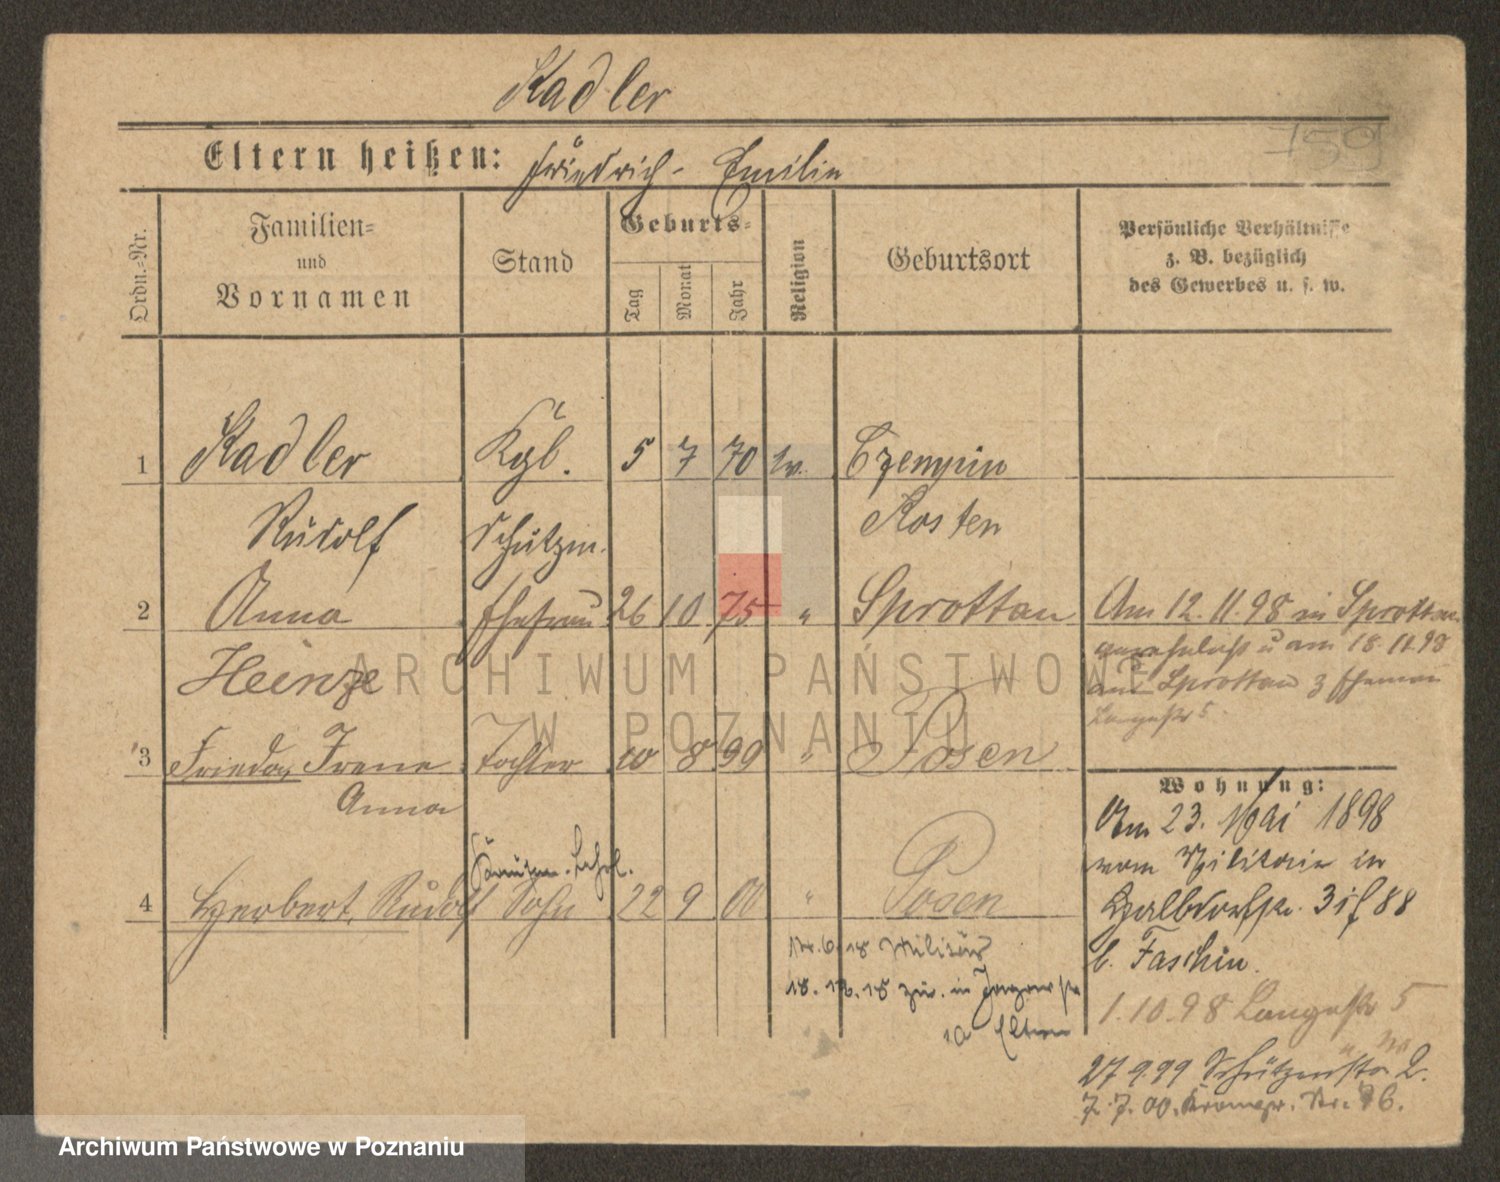 Kadler
759
Eltern heißen: Friedrich - Emilie
Ordn.-Nr.
Familien- und Vornamen
Stand
Geburts-
Tag Monat Jahr
Religion
Geburtsort
Persönliche Verhältnisse
z. B. bezüglich
des Gewerbes u. s. w.
1 Kadler Kgl. 5 7 70 ev. Czempin
Rudolf Schutzm. Kosten
2 Anna Ehefrau 26 10 75 " Sprottau
Heinze
Am 12. 11. 98 in Sprottau
u am 18. 11. 98
aus Sprottau z Ehemann
Langestr 5.
3 Frieda, Irene Tochter 10 8 99 " Posen
Anna
4 Herbert, Rudolf Sohn 22 9 00 " Posen
6. 18 Militär
18. 12. 18 zur. in
10 Eltern
Wohnung:
Am 23. Mai 1898
vom Militair in
Halbdorfstr. 3
b. Faschin.
1. 10. 98 Langestr 5
27 9. 99 Schützenstr 2.
7. 7. 00.
ARCHIWUM PAŃSTWOWE
W POZNANIU
Archiwum Państwowe w Poznaniu